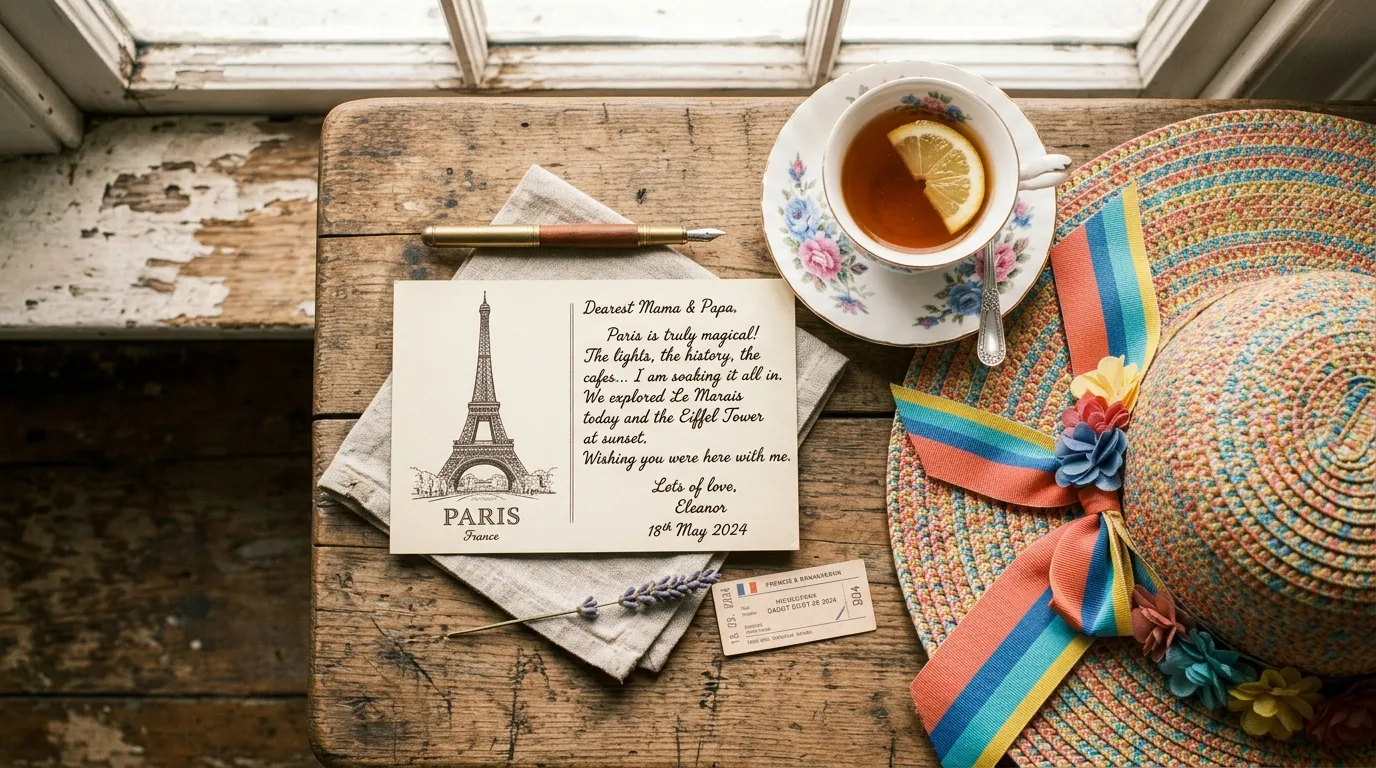 PARIS
France
Dearest Mama & Papa,
Paris is truly magical!
The lights, the history, the
cafes... I am soaking it all in.
We explored Le Marais
today and the Eiffel Tower
at sunset.
Wishing you were here with me.
Lots of love,
Eleanor
18th May 2024
904